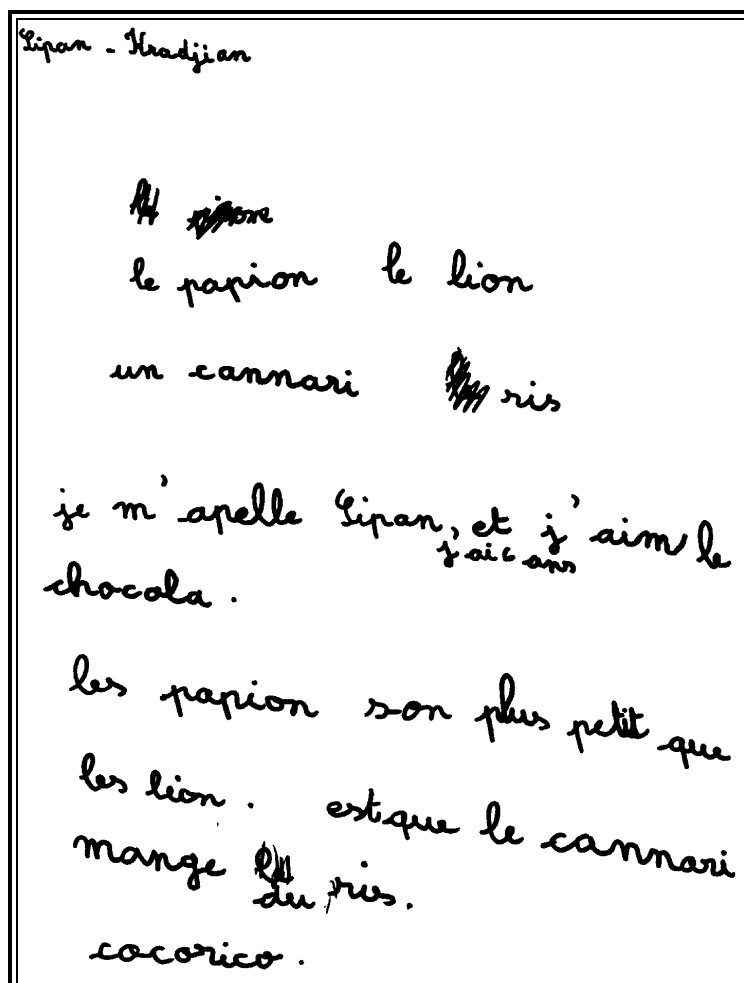 Sipan - Kradjian
le papion le lion
un cannari ris
je m'apelle Sipan, et j'aim le
j'ai 6 ans
chocola.
les papion son plus petit que
les lion. estque le cannari
mange
du ris.
cocorico.